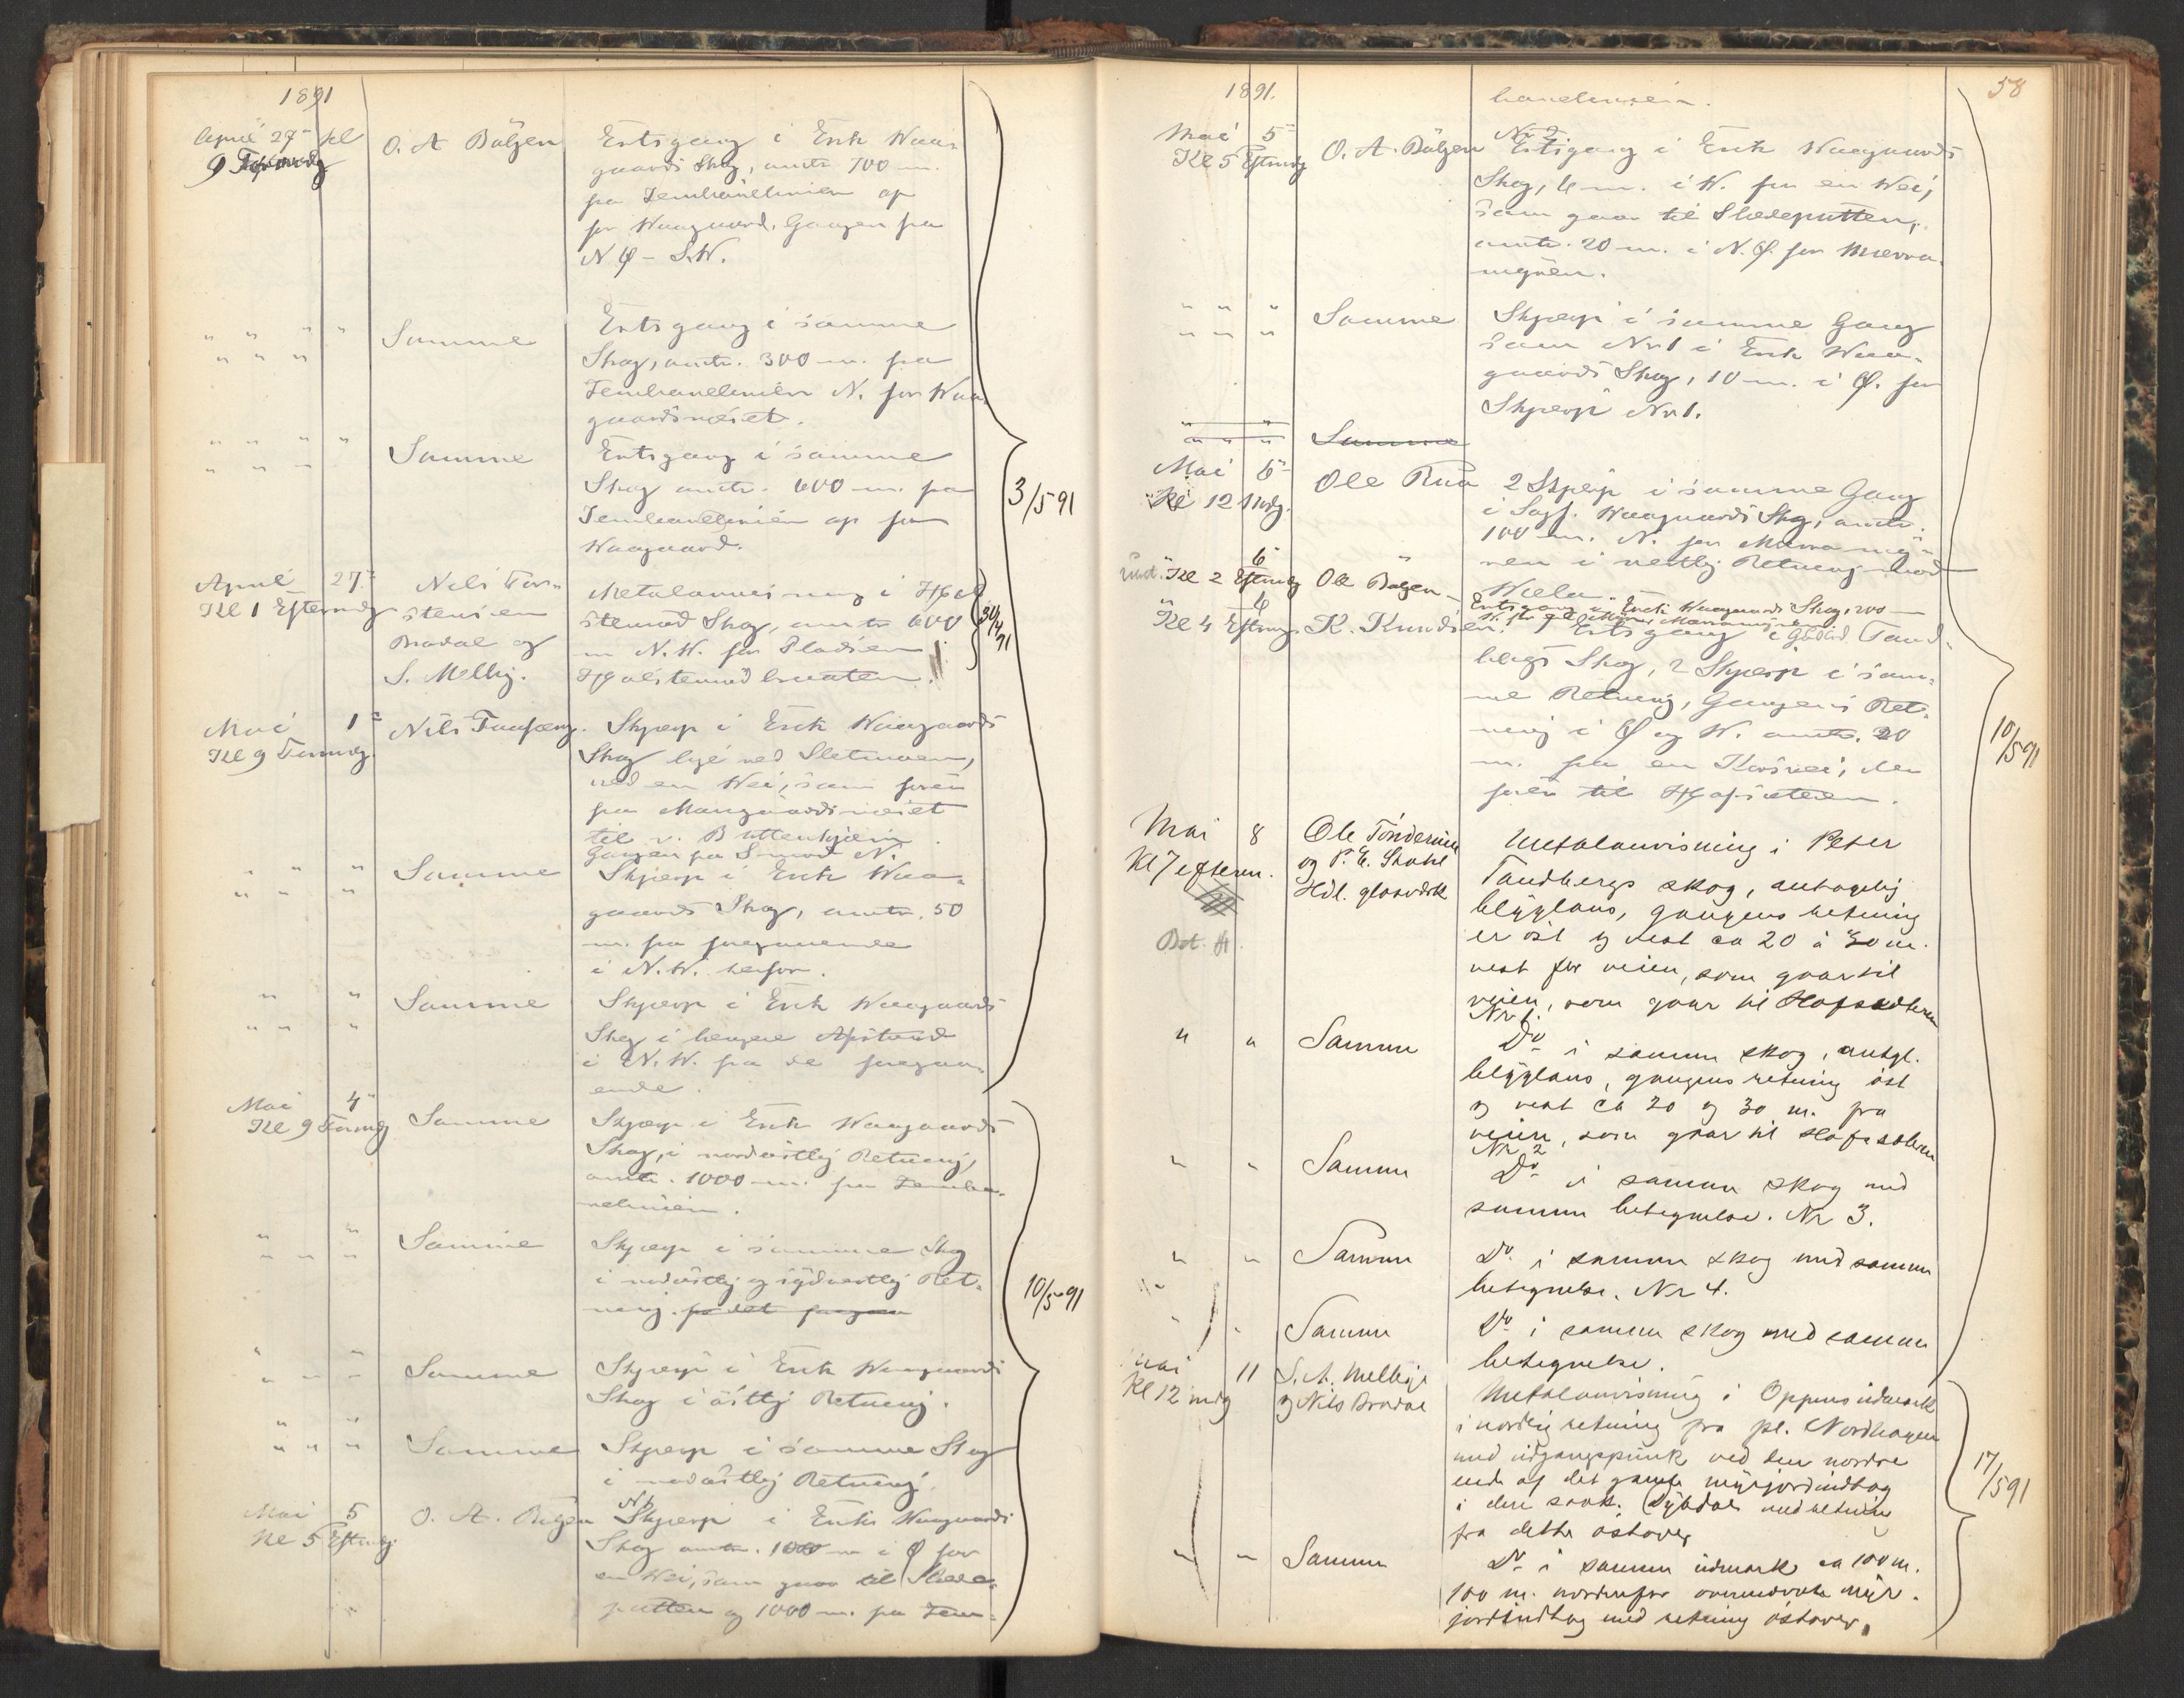 1891
April 27de Kl
9 Formdg
O. A Bålgen
Ertsgang i Erik Waa-
gaards Skog, amtr 700 m.
fra Jernbanelinien op
for Waagaard, Gangen fra
N Ø - S.W.
" " " "
" " "
Samme
Ertsgang i samme
Skog, amtr. 300 m. fra
Jernbanelinien N. for Waa-
gaardsnæset.
" " " "
" " "
Samme
Ertsgang i samme
Skog amtr. 600 m. fra
Jernbanelinien op for
Waagaard.
3/5 91
April 27de
Kl 1 Eftermdg
Nils Tor-
stensen
Bradal og
S. Melby.
Metalanvisning i
Skog, amtr 600
m N.W. for Pladsen
30/4 91
Mai 1ste
Kl 9 Formdg.
Nils
Skjærp i Erik Waagaards
Skog lige ved Sletmoen,
ved en Wei, som fører
fra
til
Gangen fra S mod N.
" " "
" " "
Samme
Skjærp i Erik Waa-
gaards Skog, amtr. 50
m. fra foregaaende
i N.W. herfor.
" "
" " "
Samme
Skjærp i Erik Waagaards
Skog i længere Afstand
i N.W. fra de foregaa-
ende.
Mai 4de
Kl 9 Formdg
Samme
Skjærp i Erik Waagaards
Skog, i nordøstlig Retning,
amtr. 1000 m. fra Jernba-
nelinien.
" "
" " "
Samme
Skjærp i samme Skog
i nordøstlig og sydvestlig Ret-
ning. fra det foregaa
10/5 91
" "
" " "
Samme
Skjærp i Erik Waagaards
Skog i østlig Retning.
" "
" " "
Samme
Skjærp i samme Skog
i nordøstlig Retning.
Mai 5
Kl 5 Eftmdg.
O. A. Bålgen
N 1
Skjærp i Eriks Waagaards
Skog amtr. 1000 m i Ø for
en Wei, som gaar til Slæde-
putten og 1000 m. fra Jern-
1891.
58
banelinien.
Mai 5te
Kl 5 Eftmdg
O. A. Bålgen
Nr 2
Ertsgang i Erik Waagaards
Skog, 6 m. i W. for en Wei,
som gaar til Slædeputten,
amtr. 20 m. i N.Ø. for Mærra-
myren.
" " "
" " "
Samme
Skjærp i samme Gang
som Nr 1 i Erik Waa-
gaards Skog, 10 m. i Ø. for
Skjærp Nr 1.
" "
" " "
Samme
Mai 6te
Kl 12 Mdg.
Ole Rua
2 Skjærp i samme Gang
i Waagaards Skog, amtr.
100 m. N. for Mærramy-
ren i vestlig Retning mod
" 6te
Kl 2 Eftmdg
Ole Bålgen
Ertsgang i Erik Waagaards Skog, 200
" 6
Kl 4 Eftmdg
K. Knudsen.
Ertsgang i Tand-
bergs Skog, 2 Skjærp i sam-
me Retning, Gangens Ret-
ning i Ø og W. amtr. 20
m. fra en Korsvei, der
fører til Hofsæteren.
10/5 91
Mai 8
Kl 7 efterm.
Ole Tønderum
og P. E. Stahl
Hdl. glasværk
Metalanvisning i Peter
Tandbergs skog, antagelig
blyglans, gangens retning
er øst og vest ca 20 à 30 m.
vest for veien, som gaar til
veien, som gaar til Hofsæteren
Nr 1.
Bet. H.
" "
Samme
Do i samme skog, antgl.
blyglans, gangens retning øst
og vest ca 20 og 30 m. fra
veien, som gaar til Hofsæteren
Nr 2
" "
Samme
Do i samme skog med
samme betegnelse. Nr 3.
" "
Samme
Do i samme skog med samme
betegnelse. Nr 4.
" "
Samme
Do i samme skog med samme
betegnelse.
Mai 11
Kl 12 mdg
S. A. Melbye
og Nils Bradal
Metalanvisning i Oppens udmark
i nordlig retning fra pl. Nordhagen
med udgangspunk ved den nordre
ende af det gamle myrjordindtag
i den saak. Dybdal med retning
fra dette østover
17/5 91
" "
Samme
Do i samme udmark ca 100 m.
100 m. nordenfor ovennævnte myr-
jordindtag med retning østover.